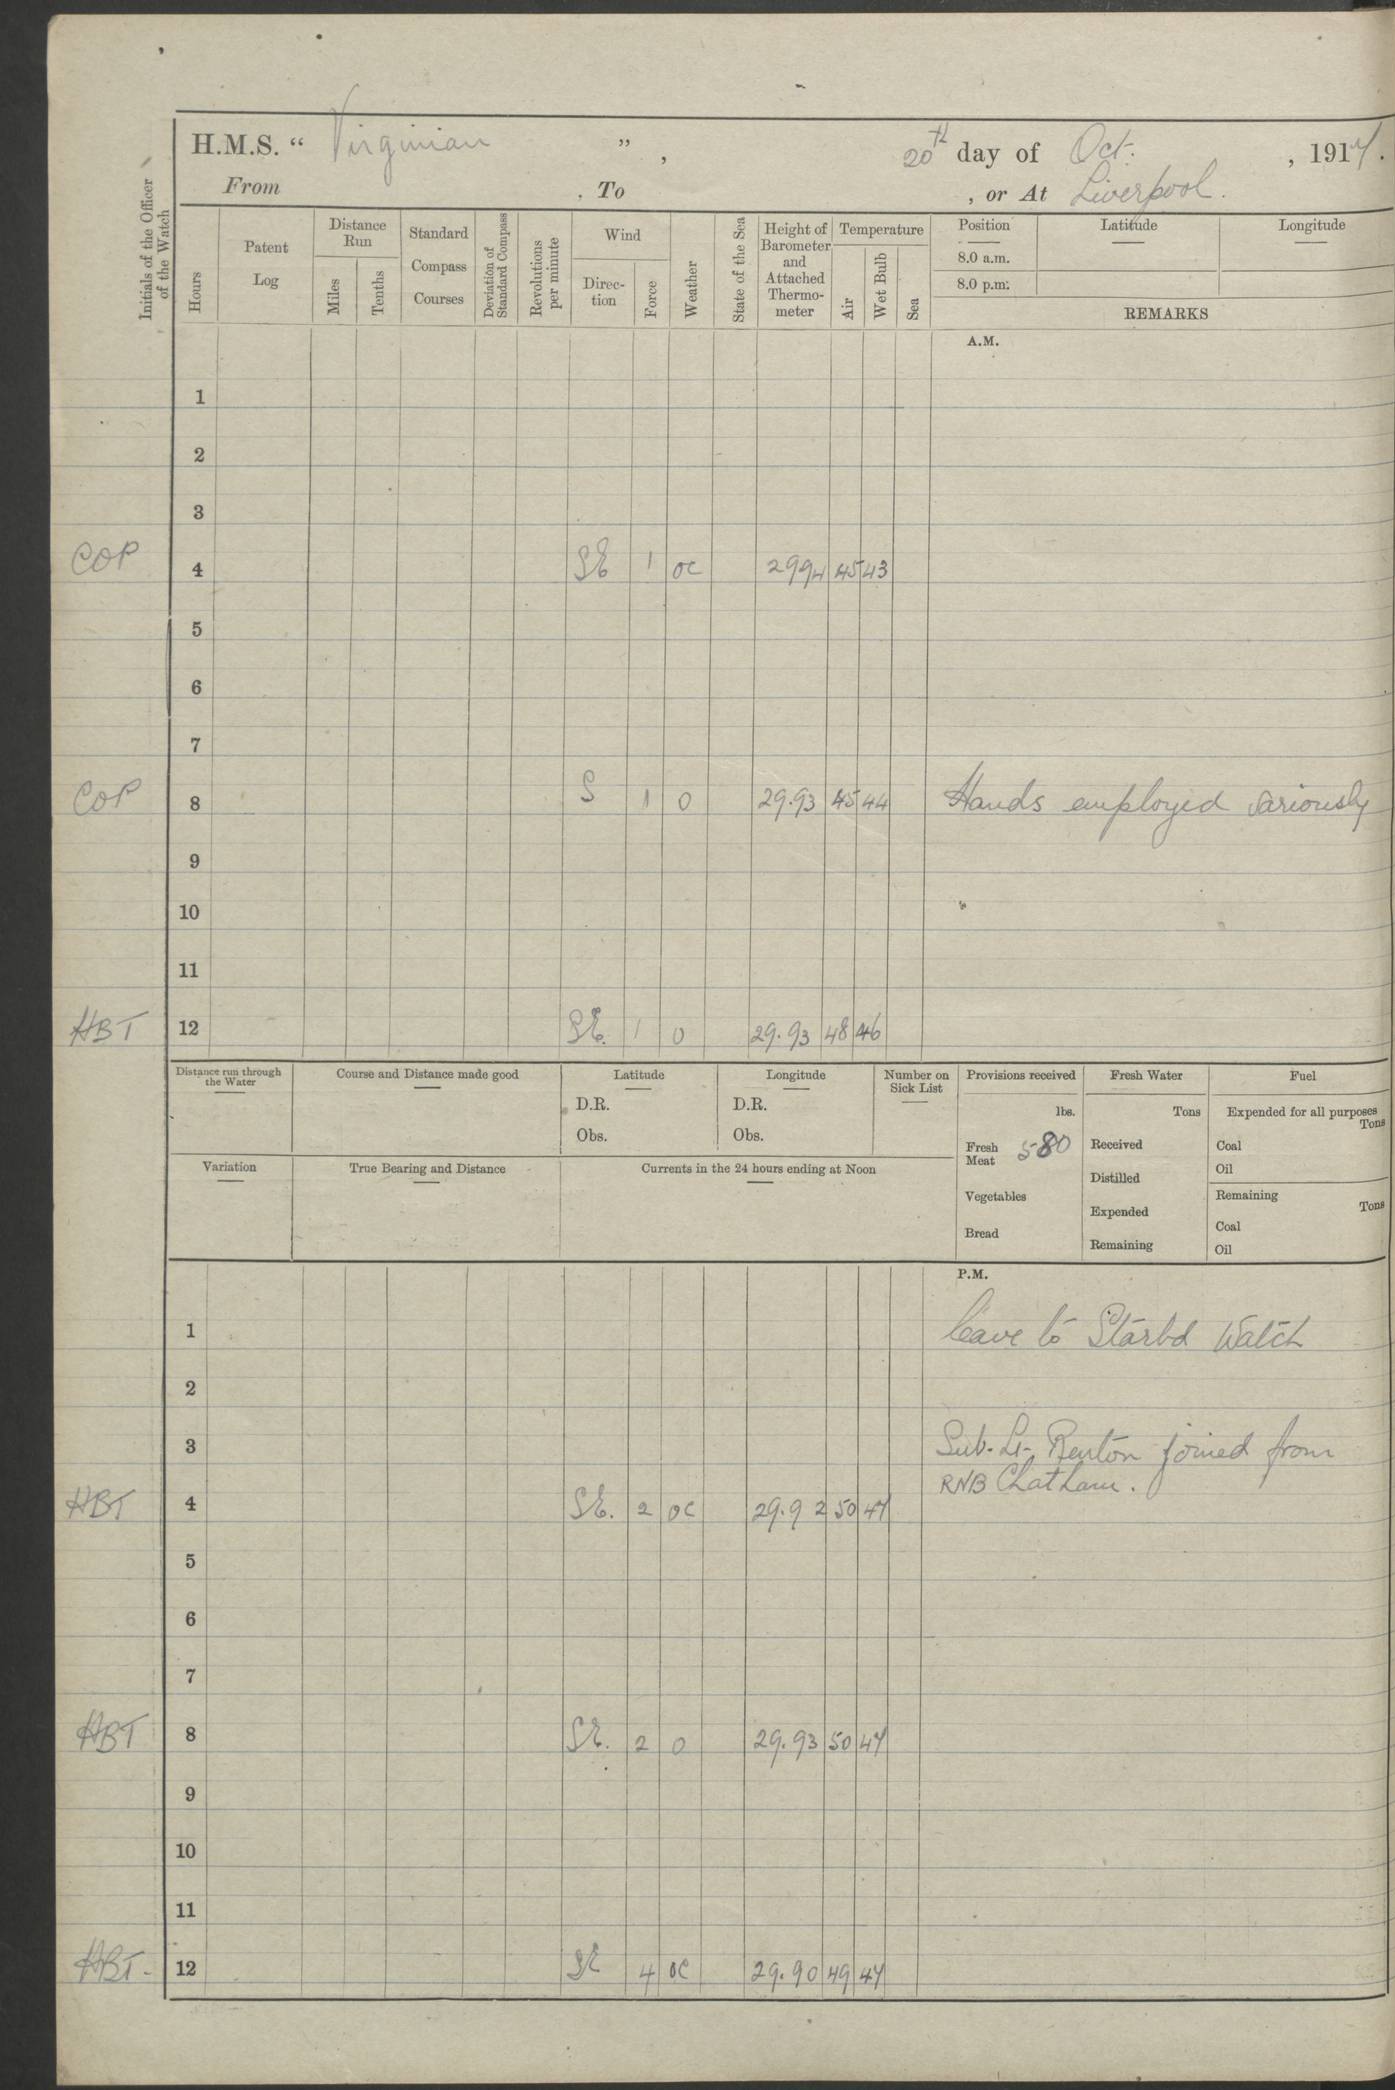 H.M.S. “ Virginian ” , 20th day of Oct. , 1917.
From , To , or At Liverpool.
Initials of the Officer of the Watch
Hours
Patent Log
Distance Run
Miles
Tenths
Standard Compass Courses
Deviation of Standard Compass
Revolutions per minute
Wind
Direc-tion
Force
Weather
State of the Sea
Height of Barometer and Attached Thermo-meter
Temperature
Air
Wet Bulb
Sea
Position Latitude Longitude
8.0 a.m.
8.0 p.m.
REMARKS
A.M.
1
2
3
COP 4 SE 1 oc 2994 45 43
5
6
7
COP 8 S 1 o 29.93 45 44 Hands employed variously
9
10
11
HBT 12 SE. 1 o 29.93 48 46
Distance run through the Water
Course and Distance made good
Latitude
D.R.
Obs.
Longitude
D.R.
Obs.
Number on Sick List
Provisions received
lbs.
Fresh Meat 580
Vegetables
Bread
Fresh Water
Tons
Received
Distilled
Expended
Remaining
Fuel
Expended for all purposes
Tons
Coal
Oil
Remaining
Tons
Coal
Oil
Variation
True Bearing and Distance
Currents in the 24 hours ending at Noon
P.M.
1 leave to Starbd Watch
2
3 Sub-Lt. Renton joined from
RNB Chatham.
HBT 4 SE. 2 oc 29.92 50 47
5
6
7
HBT 8 SE. 2 o 29.93 50 47
9
10
11
HBT- 12 SE 4 oc 29.90 49 47